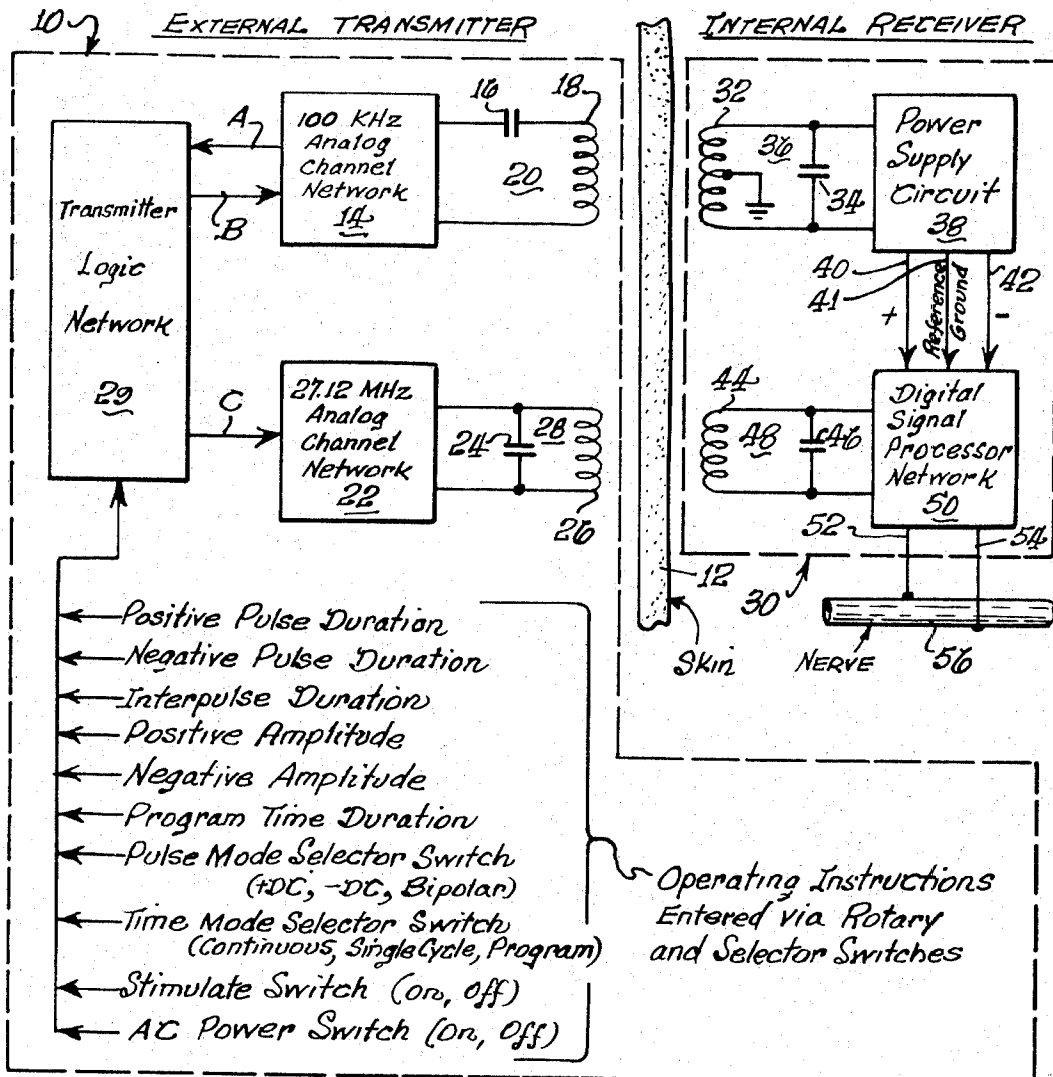 10
EXTERNAL TRANSMITTER
INTERNAL RECEIVER
Transmitter
Logic
Network
29
A
B
C
100 KHz
Analog
Channel
Network
14
16
18
20
27.12 MHz
Analog
Channel
Network
22
24
28
26
32
36
34
Power
Supply
Circuit
38
40
41
42
+
Reference
Ground
-
44
48
46
Digital
Signal
Processor
Network
50
52
54
12
30
Skin
NERVE
56
Positive Pulse Duration
Negative Pulse Duration
Interpulse Duration
Positive Amplitude
Negative Amplitude
Program Time Duration
Pulse Mode Selector Switch
(+DC, -DC, Bipolar)
Time Mode Selector Switch
(Continuous, Single Cycle, Program)
Stimulate Switch (on, off)
AC Power Switch (on, off)
Operating Instructions
Entered via Rotary
and Selector Switches